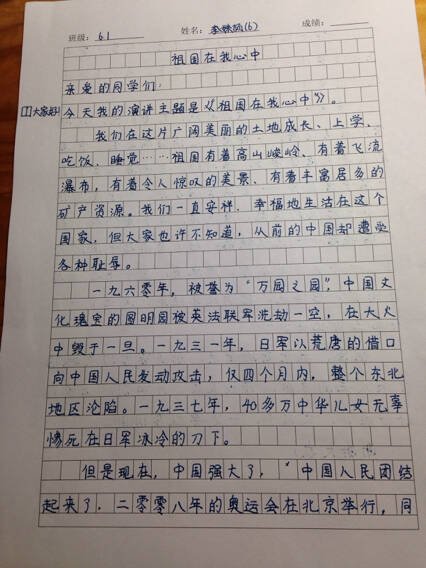 班级: 61 姓名: 李 (6) 成绩:
祖国在我心中
亲爱的同学们:
[1]大家好!
今天我的演讲主题是《祖国在我心中》。
我们在这片广阔美丽的土地成长、上学、
吃饭、睡觉……祖国有着高山峻岭、有着飞流
瀑布,有着令人惊叹的美景、有着丰富居多的
矿产资源。我们一直安祥、幸福地生活在这个
国家,但大家也许不知道,从前的中国却遭受
各种耻辱。
一九六零年,被誉为“万园之园”,中国文
化瑰宝的圆明园被英法联军洗劫一空,在大火
中毁于一旦。一九三一年,日军以荒唐的借口
向中国人民发动攻击,仅四个月内,整个东北
地区沦陷。一九三七年,40多万中华儿女无辜
惨死在日军冰冷的刀下。
但是现在,中国强大了,“中国人民团结
起来了,二零零八年的奥运会在北京举行,同